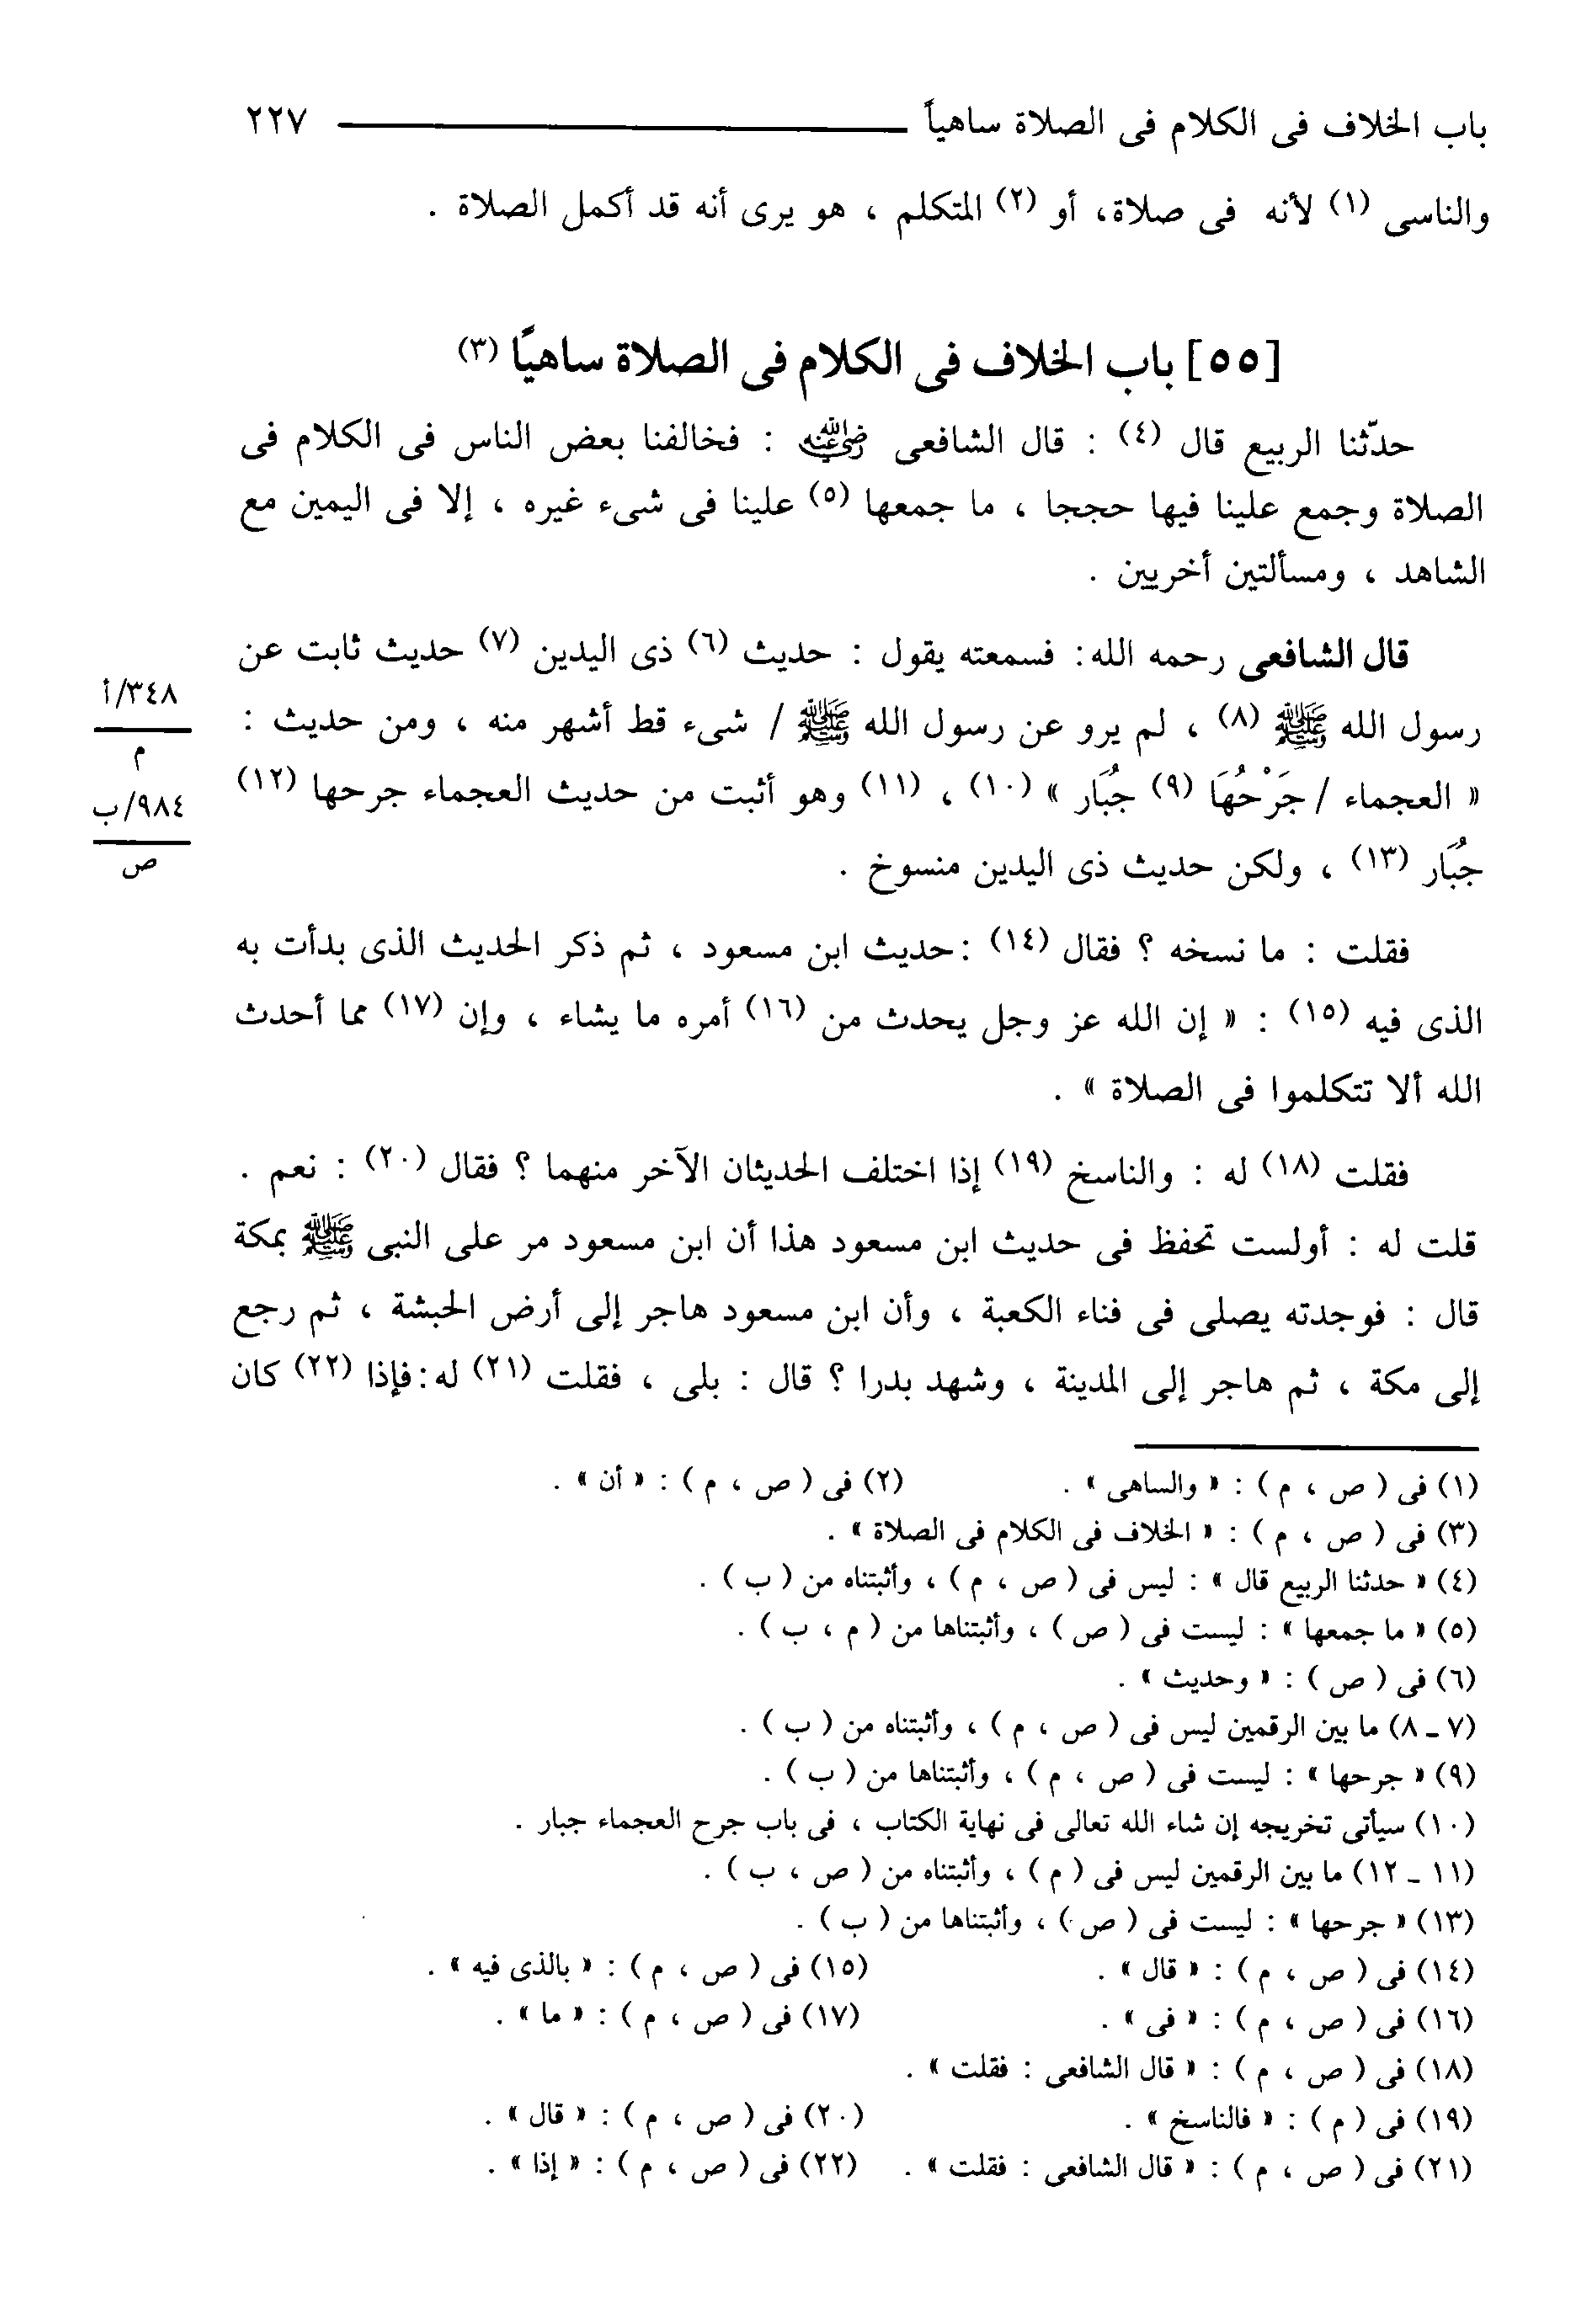 باب الخلاف فى الكلام فى الصلاة ساهياً ٢٢٧
والناسى (١) لأنه فى صلاة، أو (٢) المتكلم ، هو يرى أنه قد أكمل الصلاة .
[٥٥] باب الخلاف فى الكلام فى الصلاة ساهيًا (٣)
حدّثنا الربيع قال (٤) : قال الشافعى رضي الله عنه : فخالفنا بعض الناس فى الكلام فى
الصلاة وجمع علينا فيها حججا ، ما جمعها (٥) علينا فى شىء غيره ، إلا فى اليمين مع
الشاهد ، ومسألتين أخريين .
قال الشافعى رحمه الله: فسمعته يقول : حديث (٦) ذى اليدين (٧) حديث ثابت عن
رسول الله ﷺ (٨) ، لم يرو عن رسول الله ﷺ / شىء قط أشهر منه ، ومن حديث :
« العجماء / جَرْحُهَا (٩) جُبَار » (١٠) ، (١١) وهو أثبت من حديث العجماء جرحها (١٢)
جُبَار (١٣) ، ولكن حديث ذى اليدين منسوخ .
٣٤٨/أ
م
٩٨٤/ب
ص
فقلت : ما نسخه ؟ فقال (١٤) : حديث ابن مسعود ، ثم ذكر الحديث الذى بدأت به
الذى فيه (١٥) : « إن الله عز وجل يحدث من (١٦) أمره ما يشاء ، وإن (١٧) مما أحدث
الله ألا تتكلموا فى الصلاة » .
فقلت (١٨) له : والناسخ (١٩) إذا اختلف الحديثان الآخر منهما ؟ فقال (٢٠) : نعم .
قلت له : أولست تحفظ فى حديث ابن مسعود هذا أن ابن مسعود مر على النبى ﷺ بمكة
قال : فوجدته يصلى فى فناء الكعبة ، وأن ابن مسعود هاجر إلى أرض الحبشة ، ثم رجع
إلى مكة ، ثم هاجر إلى المدينة ، وشهد بدرا ؟ قال : بلى ، فقلت (٢١) له: فإذا (٢٢) كان
(١) فى ( ص ، م ) : « والساهى » . (٢) فى ( ص ، م ) : « أن » .
(٣) فى ( ص ، م ) : « الخلاف فى الكلام فى الصلاة » .
(٤) « حدثنا الربيع قال » : ليس فى ( ص ، م ) ، وأثبتناه من ( ب ) .
(٥) « ما جمعها » : ليست فى ( ص ) ، وأثبتناها من ( م ، ب ) .
(٦) فى ( ص ) : « وحديث » .
(٧ ـ ٨) ما بين الرقمين ليس فى ( ص ، م ) ، وأثبتناه من ( ب ) .
(٩) « جرحها » : ليست فى ( ص ، م ) ، وأثبتناها من ( ب ) .
(١٠) سيأتى تخريجه إن شاء الله تعالى فى نهاية الكتاب ، فى باب جرح العجماء جبار .
(١١ ـ ١٢) ما بين الرقمين ليس فى ( م ) ، وأثبتناه من ( ص ، ب ) .
(١٣) « جرحها » : ليست فى ( ص ) ، وأثبتناها من ( ب ) .
(١٤) فى ( ص ، م ) : « قال » . (١٥) فى ( ص ، م ) : « بالذى فيه » .
(١٦) فى ( ص ، م ) : « فى » . (١٧) فى ( ص ، م ) : « ما » .
(١٨) فى ( ص ، م ) : « قال الشافعى : فقلت » .
(١٩) فى ( م ) : « فالناسخ » . (٢٠) فى ( ص ، م ) : « قال » .
(٢١) فى ( ص ، م ) : « قال الشافعى : فقلت » . (٢٢) فى ( ص ، م ) : « إذا » .